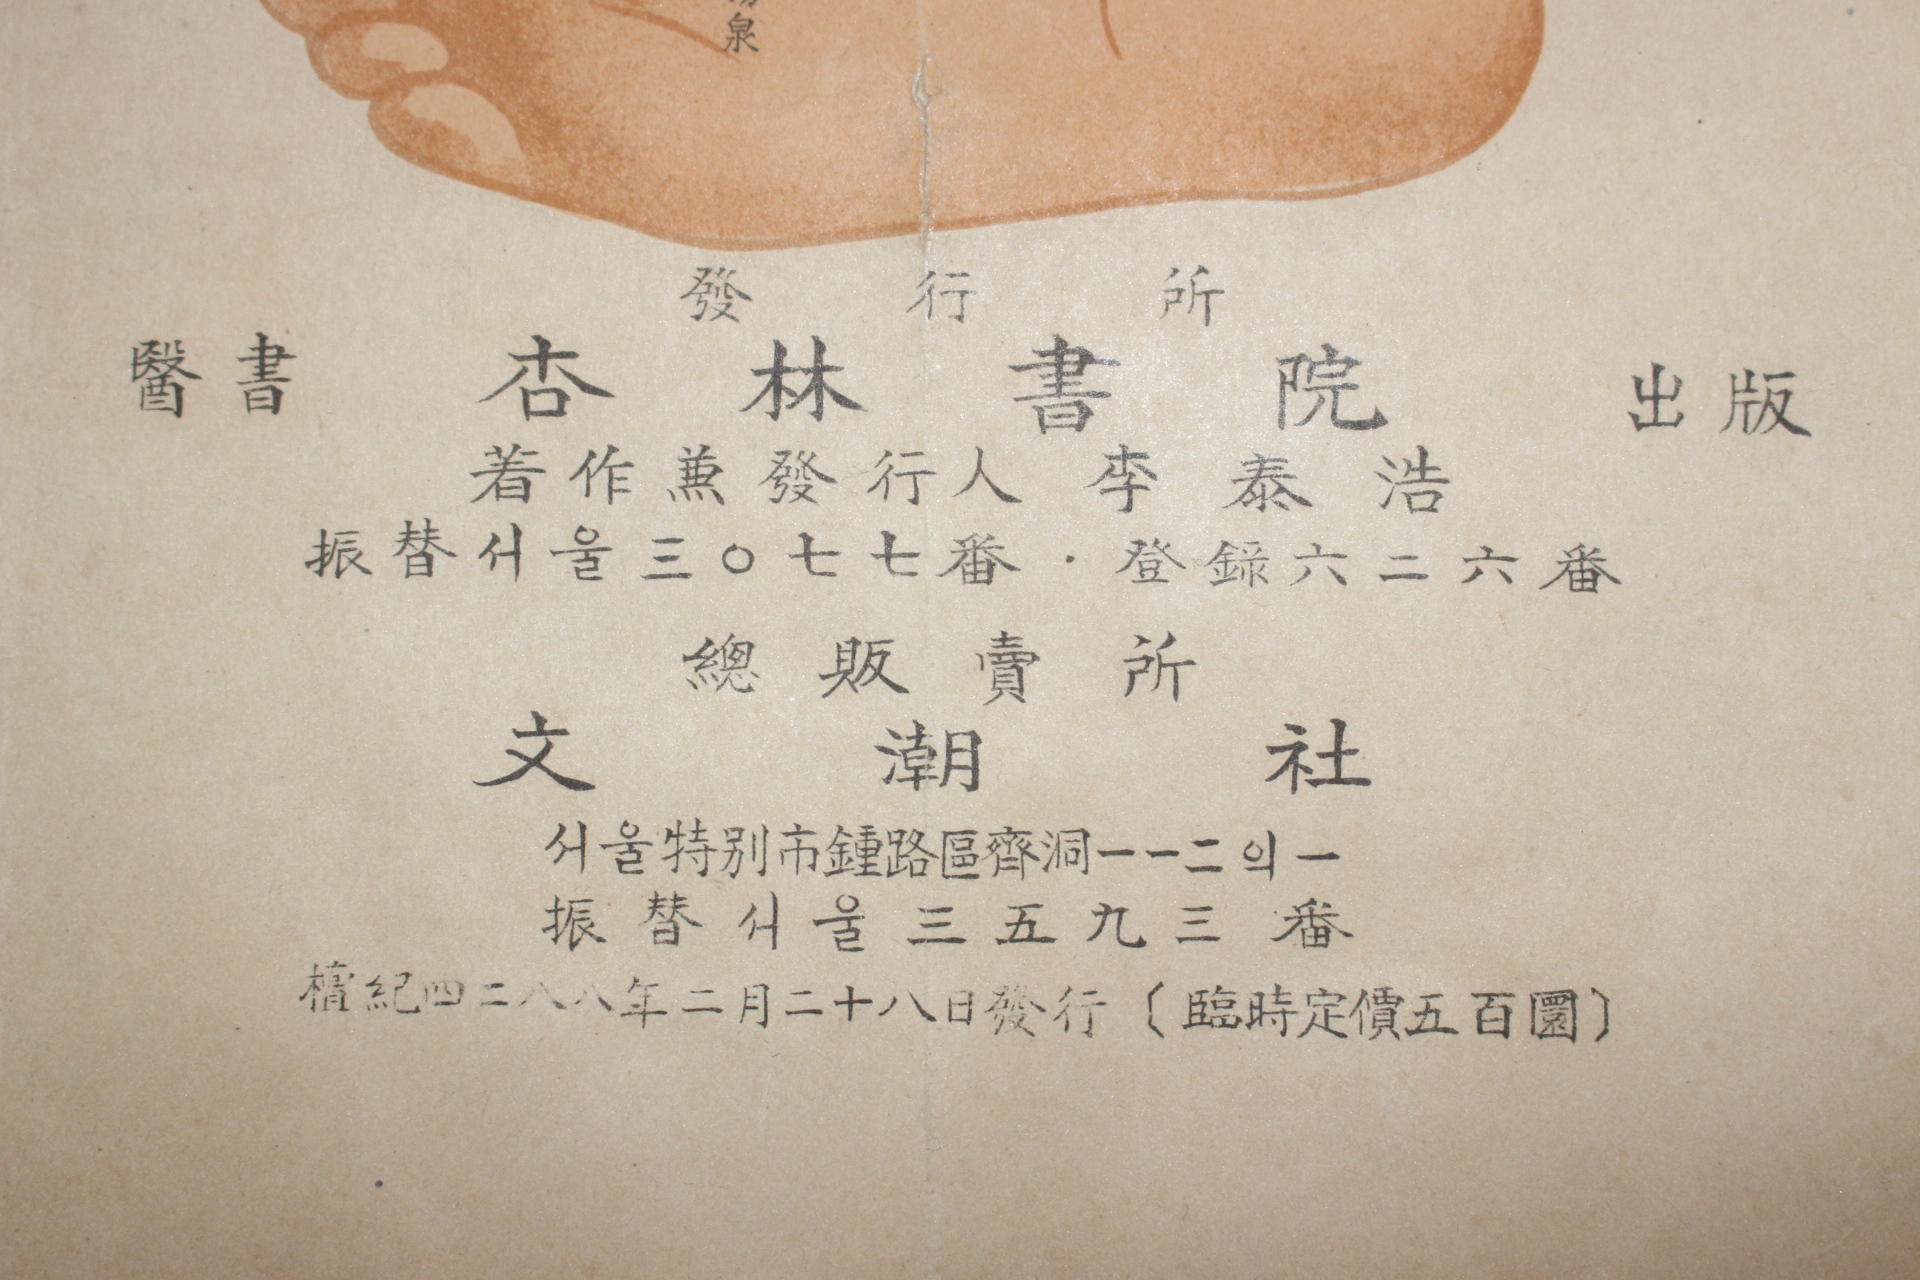 泉
發行所
醫書 杏林書院 出版
著作兼發行人 李泰浩
振替서울三〇七七番・登錄六二六番
總販賣所
文潮社
서울特別市鍾路區齊洞一一二의一
振替서울三五九三番
檀紀四二八八年二月二十八日發行〔臨時定價五百圜〕